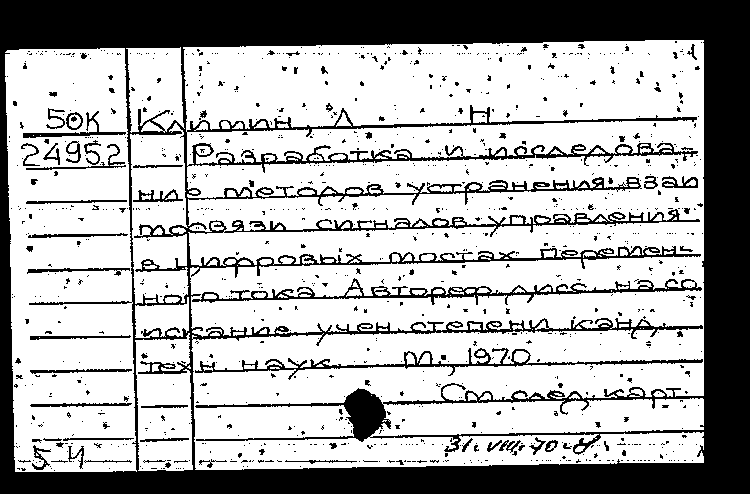 50К Климин, Л Н
24952 Разработка и исследова-
ние методов устранения взаи
мосвязи сигналов управления
в цифровых мостах перемен-
ного тока. Автореф. дисс. на со
искание учен. степени канд.
техн. наук. М., 1970.
См. след. карт.
31.VIII.70